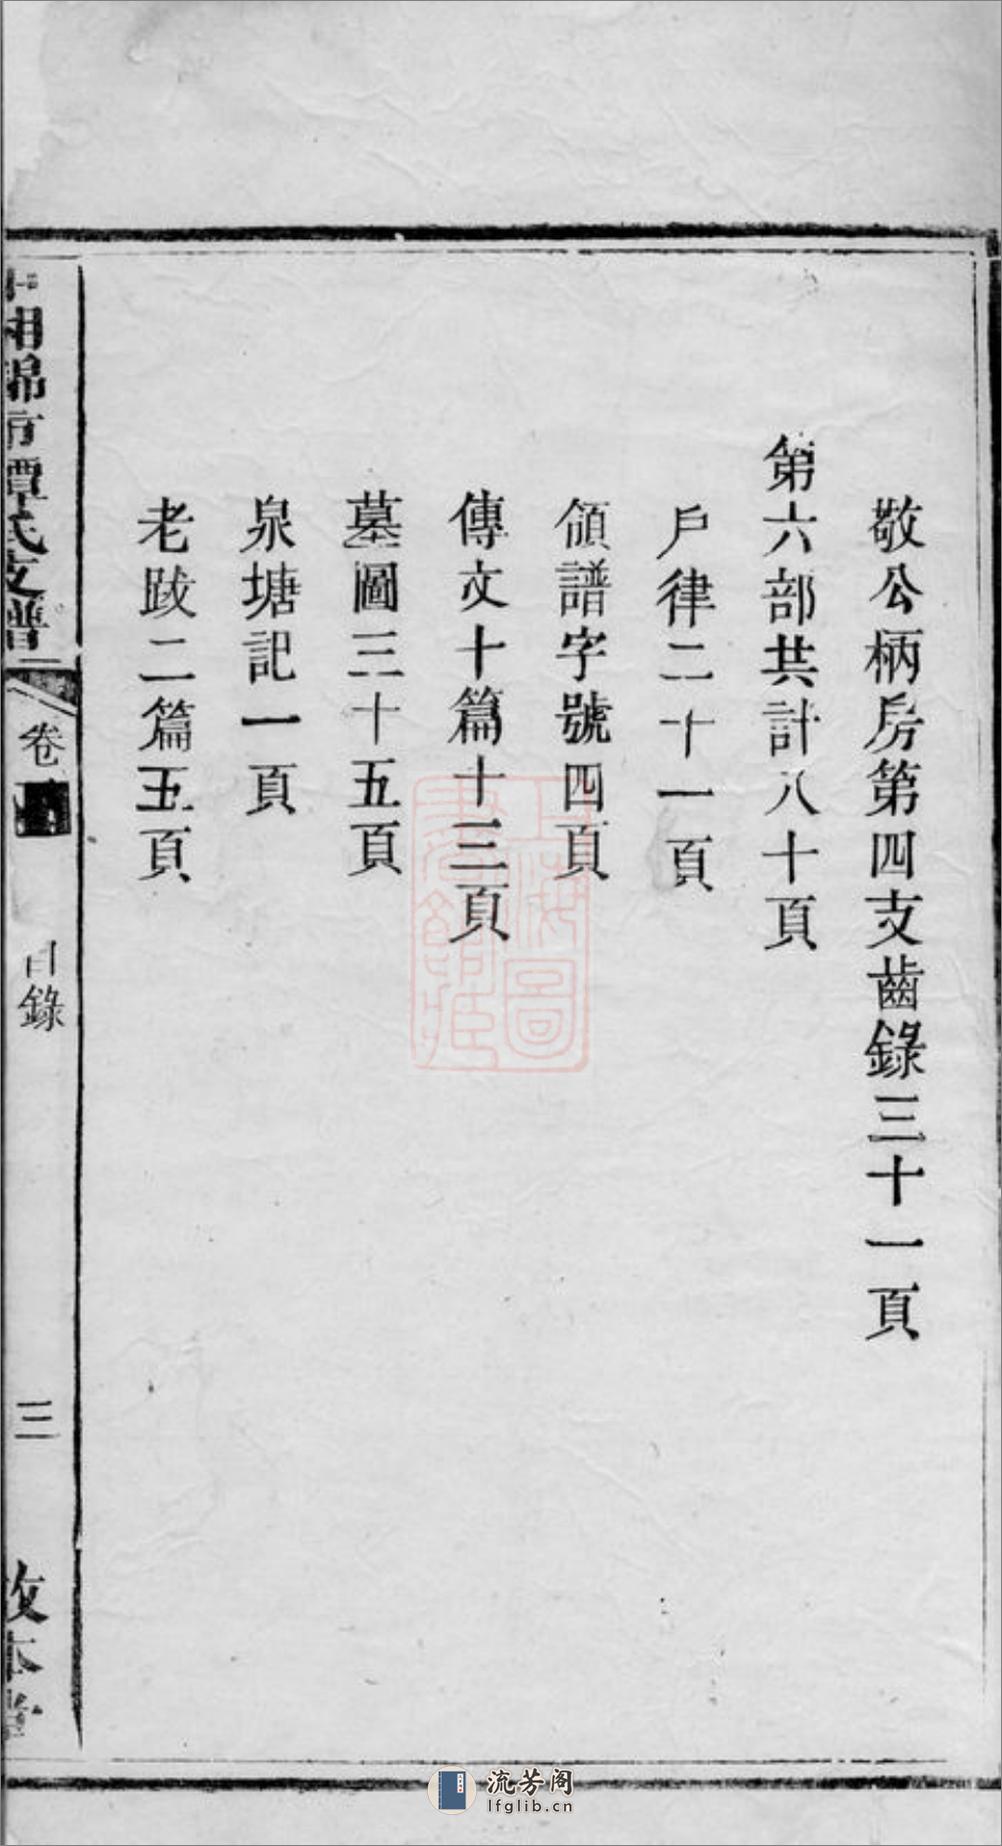 敬公柄房第四支齒錄三十一頁
第六部共計八十頁
戶律二十一頁
領譜字號四頁
傳文十篇十三頁
墓圖三十五頁
泉塘記一頁
老跋二篇五頁
湘錦市譚氏支譜
卷
目錄
三
敦本堂
上海圖書館藏
流芳阁
lfglib.cn